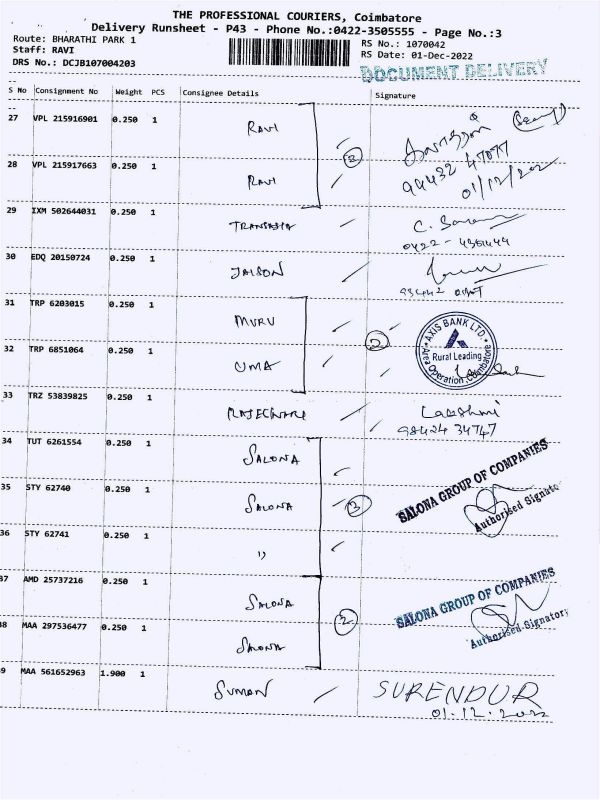 THE PROFESSIONAL COURIERS, Coimbatore
Delivery Runsheet - P43 - Phone No.:0422-3505555 - Page No.:3
Route: BHARATHI PARK 1
Staff: RAVI
DRS No.: DCJB107004203
RS No.: 1070042
RS Date: 01-Dec-2022
DOCUMENT DELIVERY
S No Consignment No Weight PCS Consignee Details Signature
27 VPL 215916901 0.250 1 RAVI
28 VPL 215917663 0.250 1 RAVI
2
94432 47077
01/12/2022
29 IXM 502644031 0.250 1 TRANSASIA
30 EDQ 20150724 0.250 1 JAISON
31 TRP 6203015 0.250 1 MURU
32 TRP 6851064 0.250 1 UMA
2
AXIS BANK LTD.
Rural Leading
Area Operation, Coimbatore
33 TRZ 53839825 0.250 1 RAJESWARI Lakshmi
98424 34747
34 TUT 6261554 0.250 1 SALONA
35 STY 62740 0.250 1 SALONA
36 STY 62741 0.250 1 "
3
SALONA GROUP OF COMPANIES
Authorised Signato
37 AMD 25737216 0.250 1 SALONA
38 MAA 297536477 0.250 1 SALONA
2
SALONA GROUP OF COMPANIES
Authorised Signatory
9 MAA 561652963 1.900 1 SUMAN SURENDUR
01.12.2022